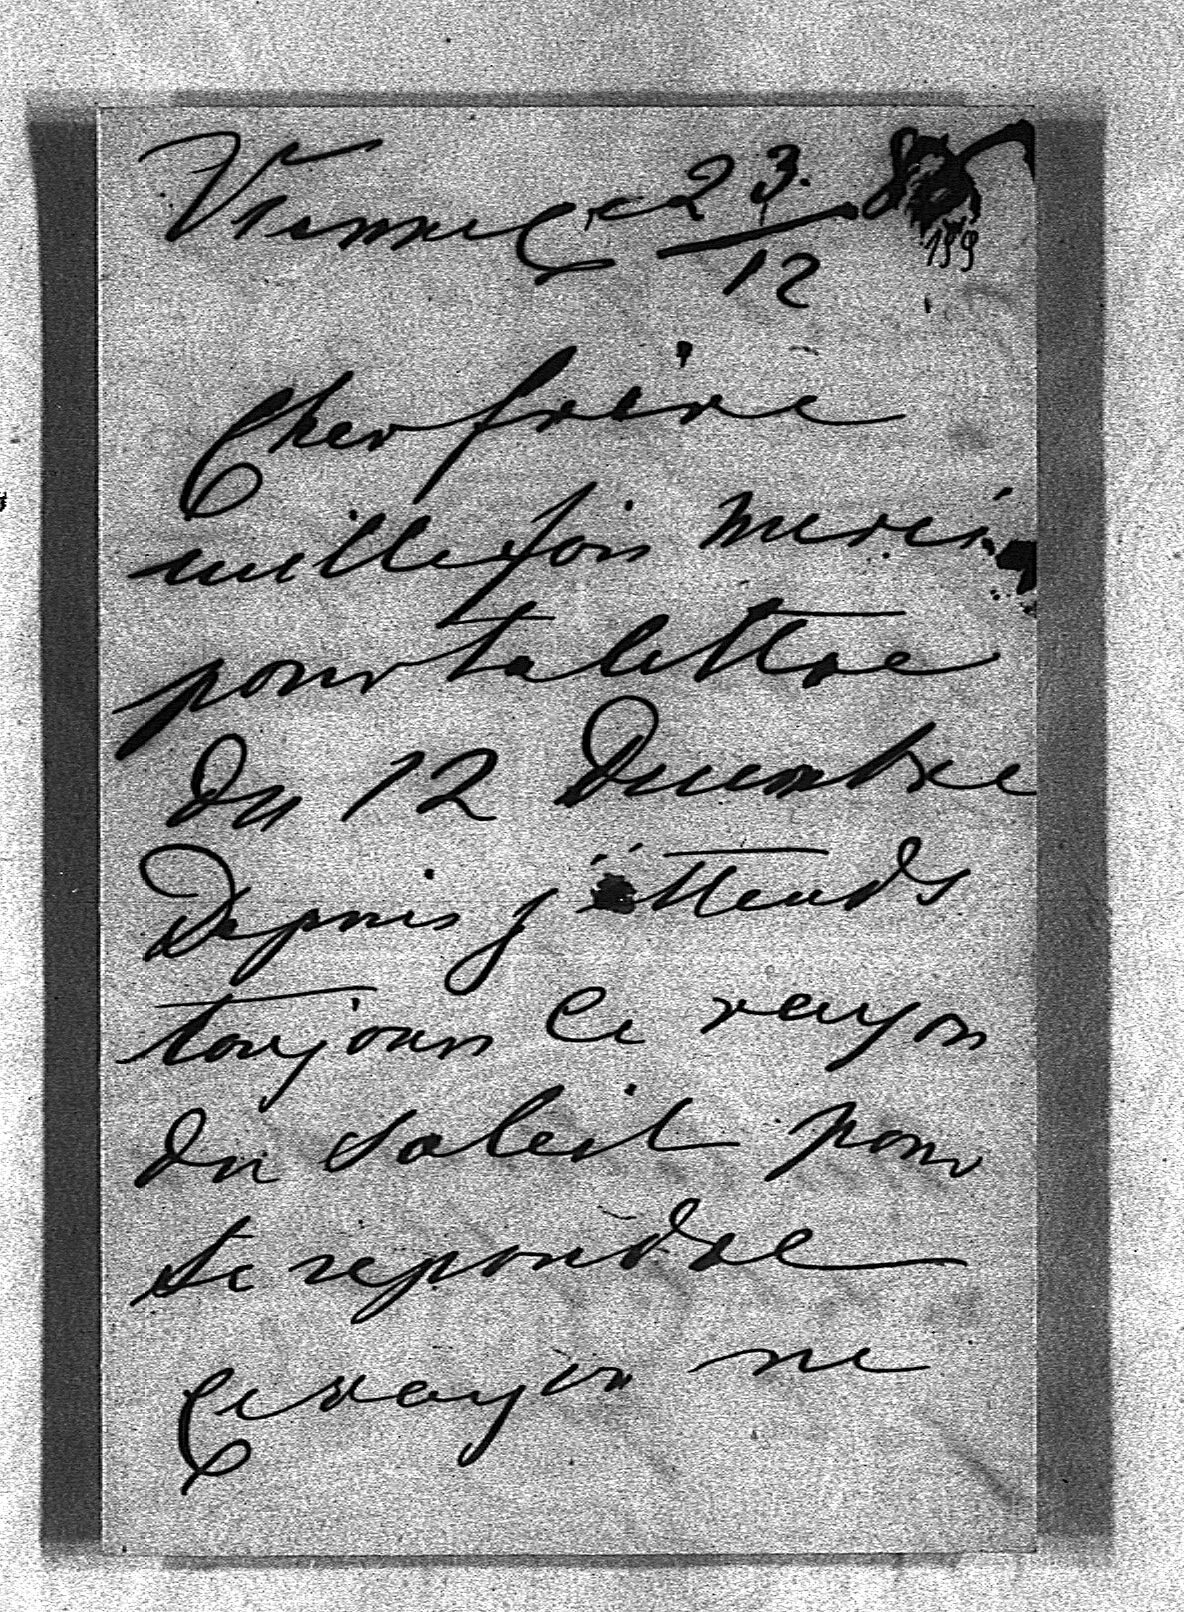 Vienne le 23/12 8
199
Cher frère
mille fois merci
pour ta lettre
du 12 Decembre
Depuis j'attends
toujours le rayon
du soleil pour
te repondre
Ce rayon ne